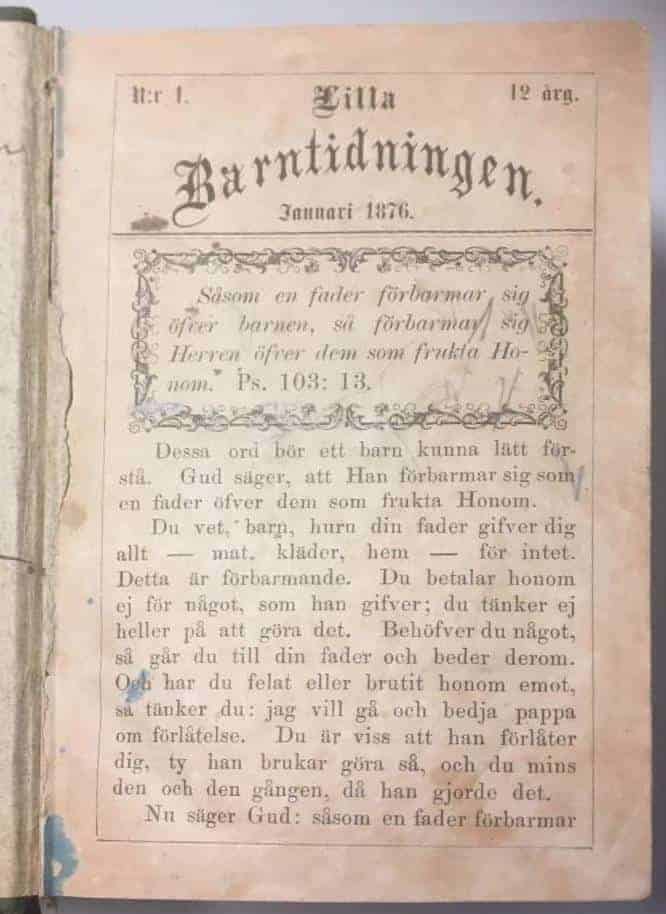 N:r 1.
Lilla
12 årg.
Barntidningen.
Januari 1876.
Såsom en fader förbarmar sig
öfver barnen, så förbarmar sig
Herren öfver dem som frukta Ho-
nom. Ps. 103: 13.
Dessa ord bör ett barn kunna lätt för-
stå. Gud säger, att Han förbarmar sig som
en fader öfver dem som frukta Honom.
Du vet, barn, huru din fader gifver dig
allt — mat, kläder, hem — för intet.
Detta är förbarmande. Du betalar honom
ej för något, som han gifver; du tänker ej
heller på att göra det. Behöfver du något,
så går du till din fader och beder derom.
Och har du felat eller brutit honom emot,
så tänker du: jag vill gå och bedja pappa
om förlåtelse. Du är viss att han förlåter
dig, ty han brukar göra så, och du mins
den och den gången, då han gjorde det.
Nu säger Gud: såsom en fader förbarmar